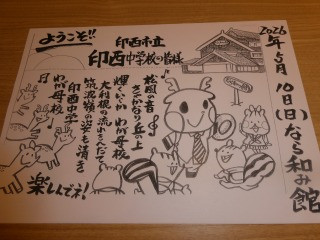 2026年5月10日(日)なら和み館
ようこそ!!
印西市立
印西中学校の皆様
松風の音
さざなり丘の上
輝くいらか わが母校
大利根の流れうたて
筑波嶺の姿も清き
印西中学
わが母校
楽しんでネ!